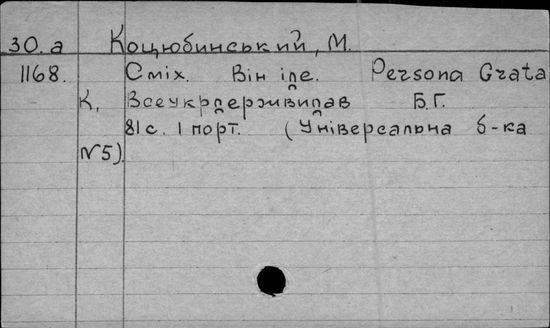 30.а Коцюбинський, М.
1168. Сміх. Він іде. Persona Grata
К, Всеукрдержвидав Б.Г.
81 с. 1 порт. (Універсальна б-ка
№5)